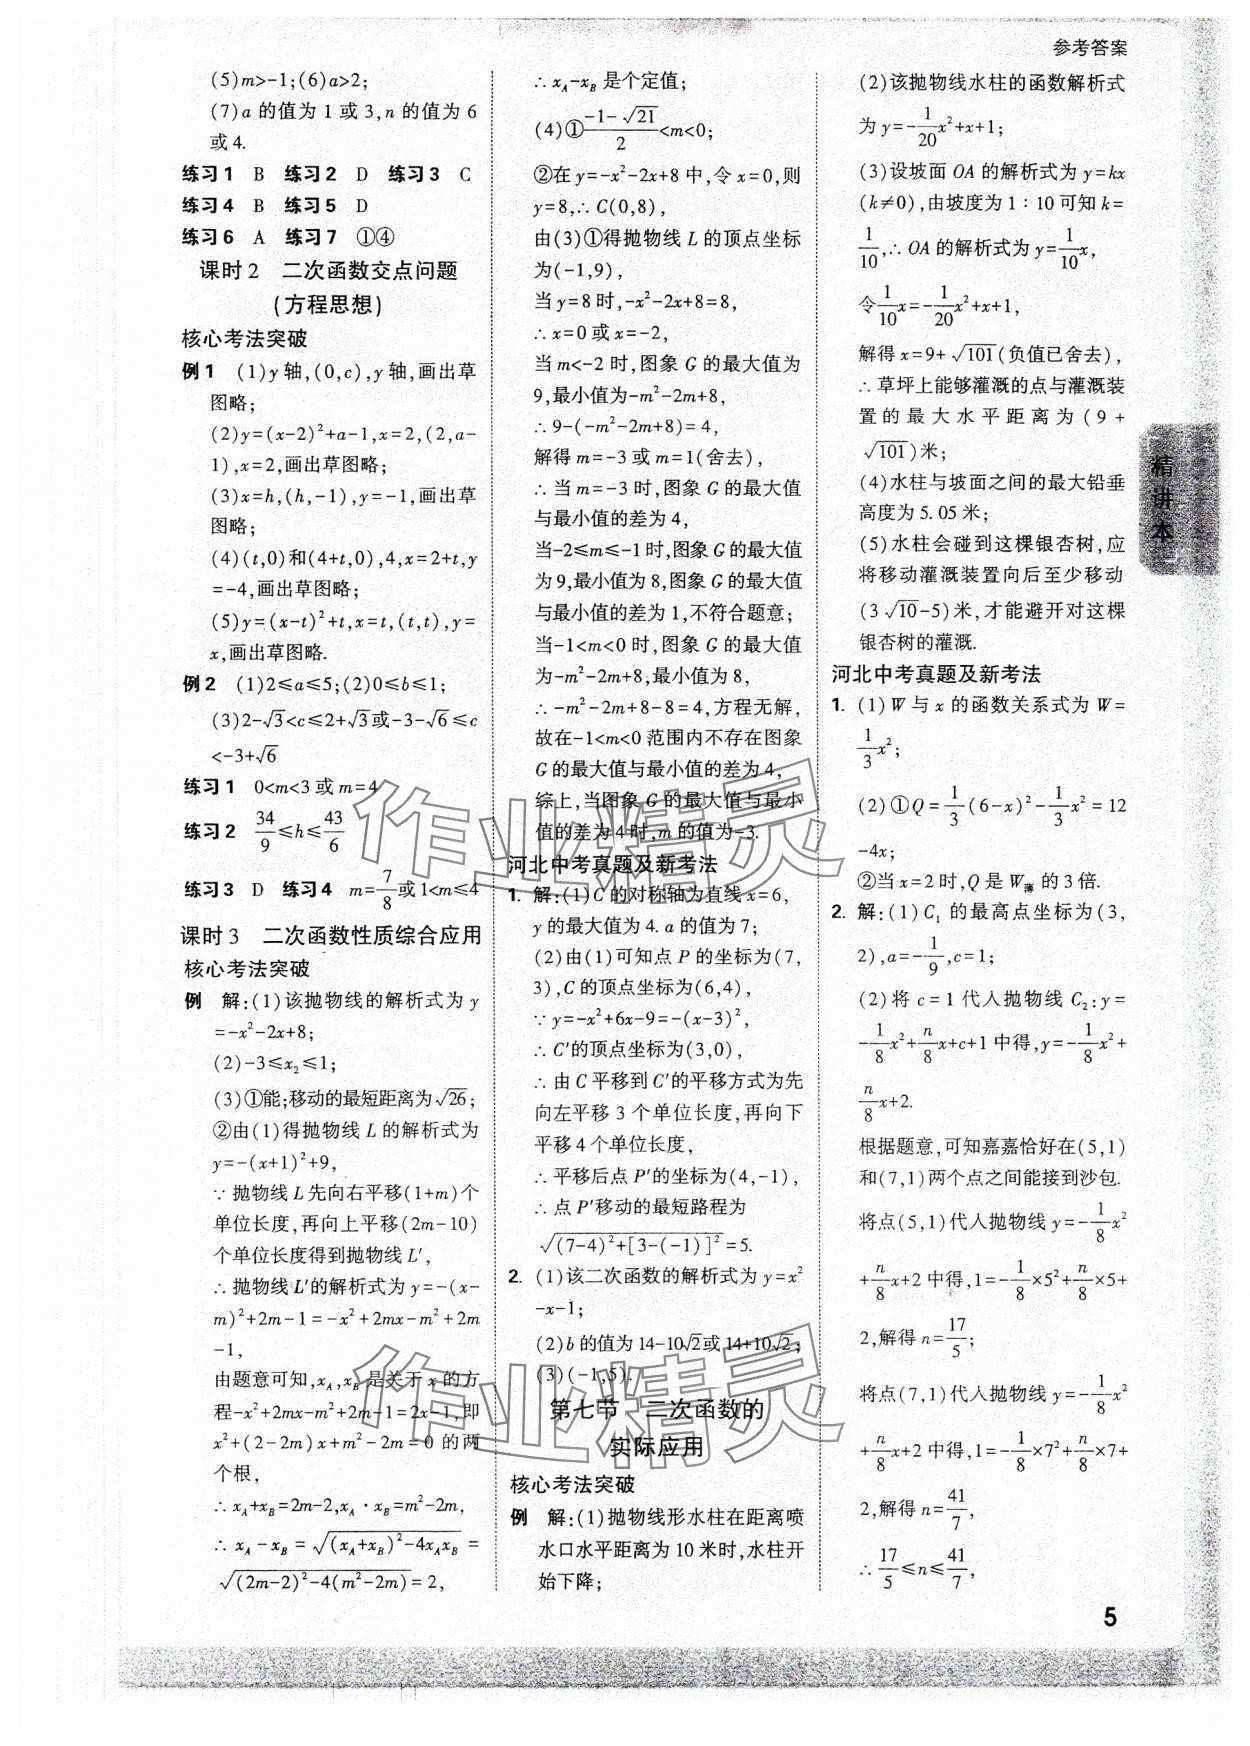 参考答案
(5)m>-1;(6)a>2;
(7)a 的值为 1 或 3,n 的值为 6
或 4.
练习1 B 练习2 D 练习3 C
练习4 B 练习5 D
练习6 A 练习7 ①④
课时2 二次函数交点问题
(方程思想)
核心考法突破
例1 (1)y 轴,(0,c),y 轴,画出草
图略;
(2)y=(x-2)²+a-1,x=2,(2,a-
1),x=2,画出草图略;
(3)x=h,(h,-1),y=-1,画出草
图略;
(4)(t,0)和(4+t,0),4,x=2+t,y
=-4,画出草图略;
(5)y=(x-t)²+t,x=t,(t,t),y=
x,画出草图略.
例2 (1)2≤a≤5;(2)0≤b≤1;
(3)2-√3<c≤2+√3或-3-√6≤c
<-3+√6
练习1 0<m<3 或 m=4
练习2 34/9≤h≤43/6
练习3 D 练习4 m=7/8或1<m≤4
课时3 二次函数性质综合应用
核心考法突破
例 解:(1)该抛物线的解析式为 y
=-x²-2x+8;
(2)-3≤x₂≤1;
(3)①能;移动的最短距离为√26;
②由(1)得抛物线 L 的解析式为
y=-(x+1)²+9,
∵抛物线 L 先向右平移(1+m)个
单位长度,再向上平移(2m-10)
个单位长度得到抛物线 L′,
∴抛物线 L′的解析式为 y=-(x-
m)²+2m-1=-x²+2mx-m²+2m
-1,
由题意可知,x_A,x_B 是关于 x 的方
程-x²+2mx-m²+2m-1=2x-1,即
x²+(2-2m)x+m²-2m=0 的两
个根,
∴x_A+x_B=2m-2,x_A·x_B=m²-2m,
∴x_A-x_B=√((x_A+x_B)²-4x_Ax_B)=
√((2m-2)²-4(m²-2m))=2,
∴x_A-x_B 是个定值;
(4)①(-1-√21)/2<m<0;
②在 y=-x²-2x+8 中,令 x=0,则
y=8,∴C(0,8),
由(3)①得抛物线 L 的顶点坐标
为(-1,9),
当 y=8 时,-x²-2x+8=8,
∴x=0 或 x=-2,
当 m<-2 时,图象 G 的最大值为
9,最小值为-m²-2m+8,
∴9-(-m²-2m+8)=4,
解得 m=-3 或 m=1(舍去),
∴当 m=-3 时,图象 G 的最大值
与最小值的差为 4,
当-2≤m≤-1 时,图象 G 的最大值
为 9,最小值为 8,图象 G 的最大值
与最小值的差为 1,不符合题意;
当-1<m<0 时,图象 G 的最大值
为-m²-2m+8,最小值为 8,
∴-m²-2m+8-8=4,方程无解,
故在-1<m<0 范围内不存在图象
G 的最大值与最小值的差为 4,
综上,当图象 G 的最大值与最小
值的差为 4 时,m 的值为-3.
河北中考真题及新考法
1. 解:(1)C 的对称轴为直线 x=6,
y 的最大值为 4. a 的值为 7;
(2)由(1)可知点 P 的坐标为(7,
3),C 的顶点坐标为(6,4),
∵y=-x²+6x-9=-(x-3)²,
∴C′的顶点坐标为(3,0),
∴由 C 平移到 C′的平移方式为先
向左平移 3 个单位长度,再向下
平移 4 个单位长度,
∴平移后点 P′的坐标为(4,-1),
∴点 P′移动的最短路程为
√((7-4)²+[3-(-1)]²)=5.
2. (1)该二次函数的解析式为 y=x²
-x-1;
(2)b 的值为 14-10√2或 14+10√2;
(3)(-1,5).
第七节 二次函数的
实际应用
核心考法突破
例 解:(1)抛物线形水柱在距离喷
水口水平距离为 10 米时,水柱开
始下降;
(2)该抛物线水柱的函数解析式
为 y=-1/20x²+x+1;
(3)设坡面 OA 的解析式为 y=kx
(k≠0),由坡度为 1∶10 可知 k=
1/10,∴OA 的解析式为 y=1/10x,
令1/10x=-1/20x²+x+1,
解得 x=9+√101(负值已舍去),
∴草坪上能够灌溉的点与灌溉装
置的最大水平距离为(9+
√101)米;
(4)水柱与坡面之间的最大铅垂
高度为 5.05 米;
(5)水柱会碰到这棵银杏树,应
将移动灌溉装置向后至少移动
(3√10-5)米,才能避开对这棵
银杏树的灌溉.
河北中考真题及新考法
1. (1)W 与 x 的函数关系式为 W=
1/3x²;
(2)①Q=1/3(6-x)²-1/3x²=12
-4x;
②当 x=2 时,Q 是 W薄 的 3 倍.
2. 解:(1)C₁ 的最高点坐标为(3,
2),a=-1/9,c=1;
(2)将 c=1 代入抛物线 C₂:y=
-1/8x²+n/8x+c+1 中得,y=-1/8x²+
n/8x+2.
根据题意,可知嘉嘉恰好在(5,1)
和(7,1)两个点之间能接到沙包.
将点(5,1)代入抛物线 y=-1/8x²
+n/8x+2 中得,1=-1/8×5²+n/8×5+
2,解得 n=17/5;
将点(7,1)代入抛物线 y=-1/8x²
+n/8x+2 中得,1=-1/8×7²+n/8×7+
2,解得 n=41/7,
∴17/5≤n≤41/7,
精讲本
5
作业精灵
作业精灵